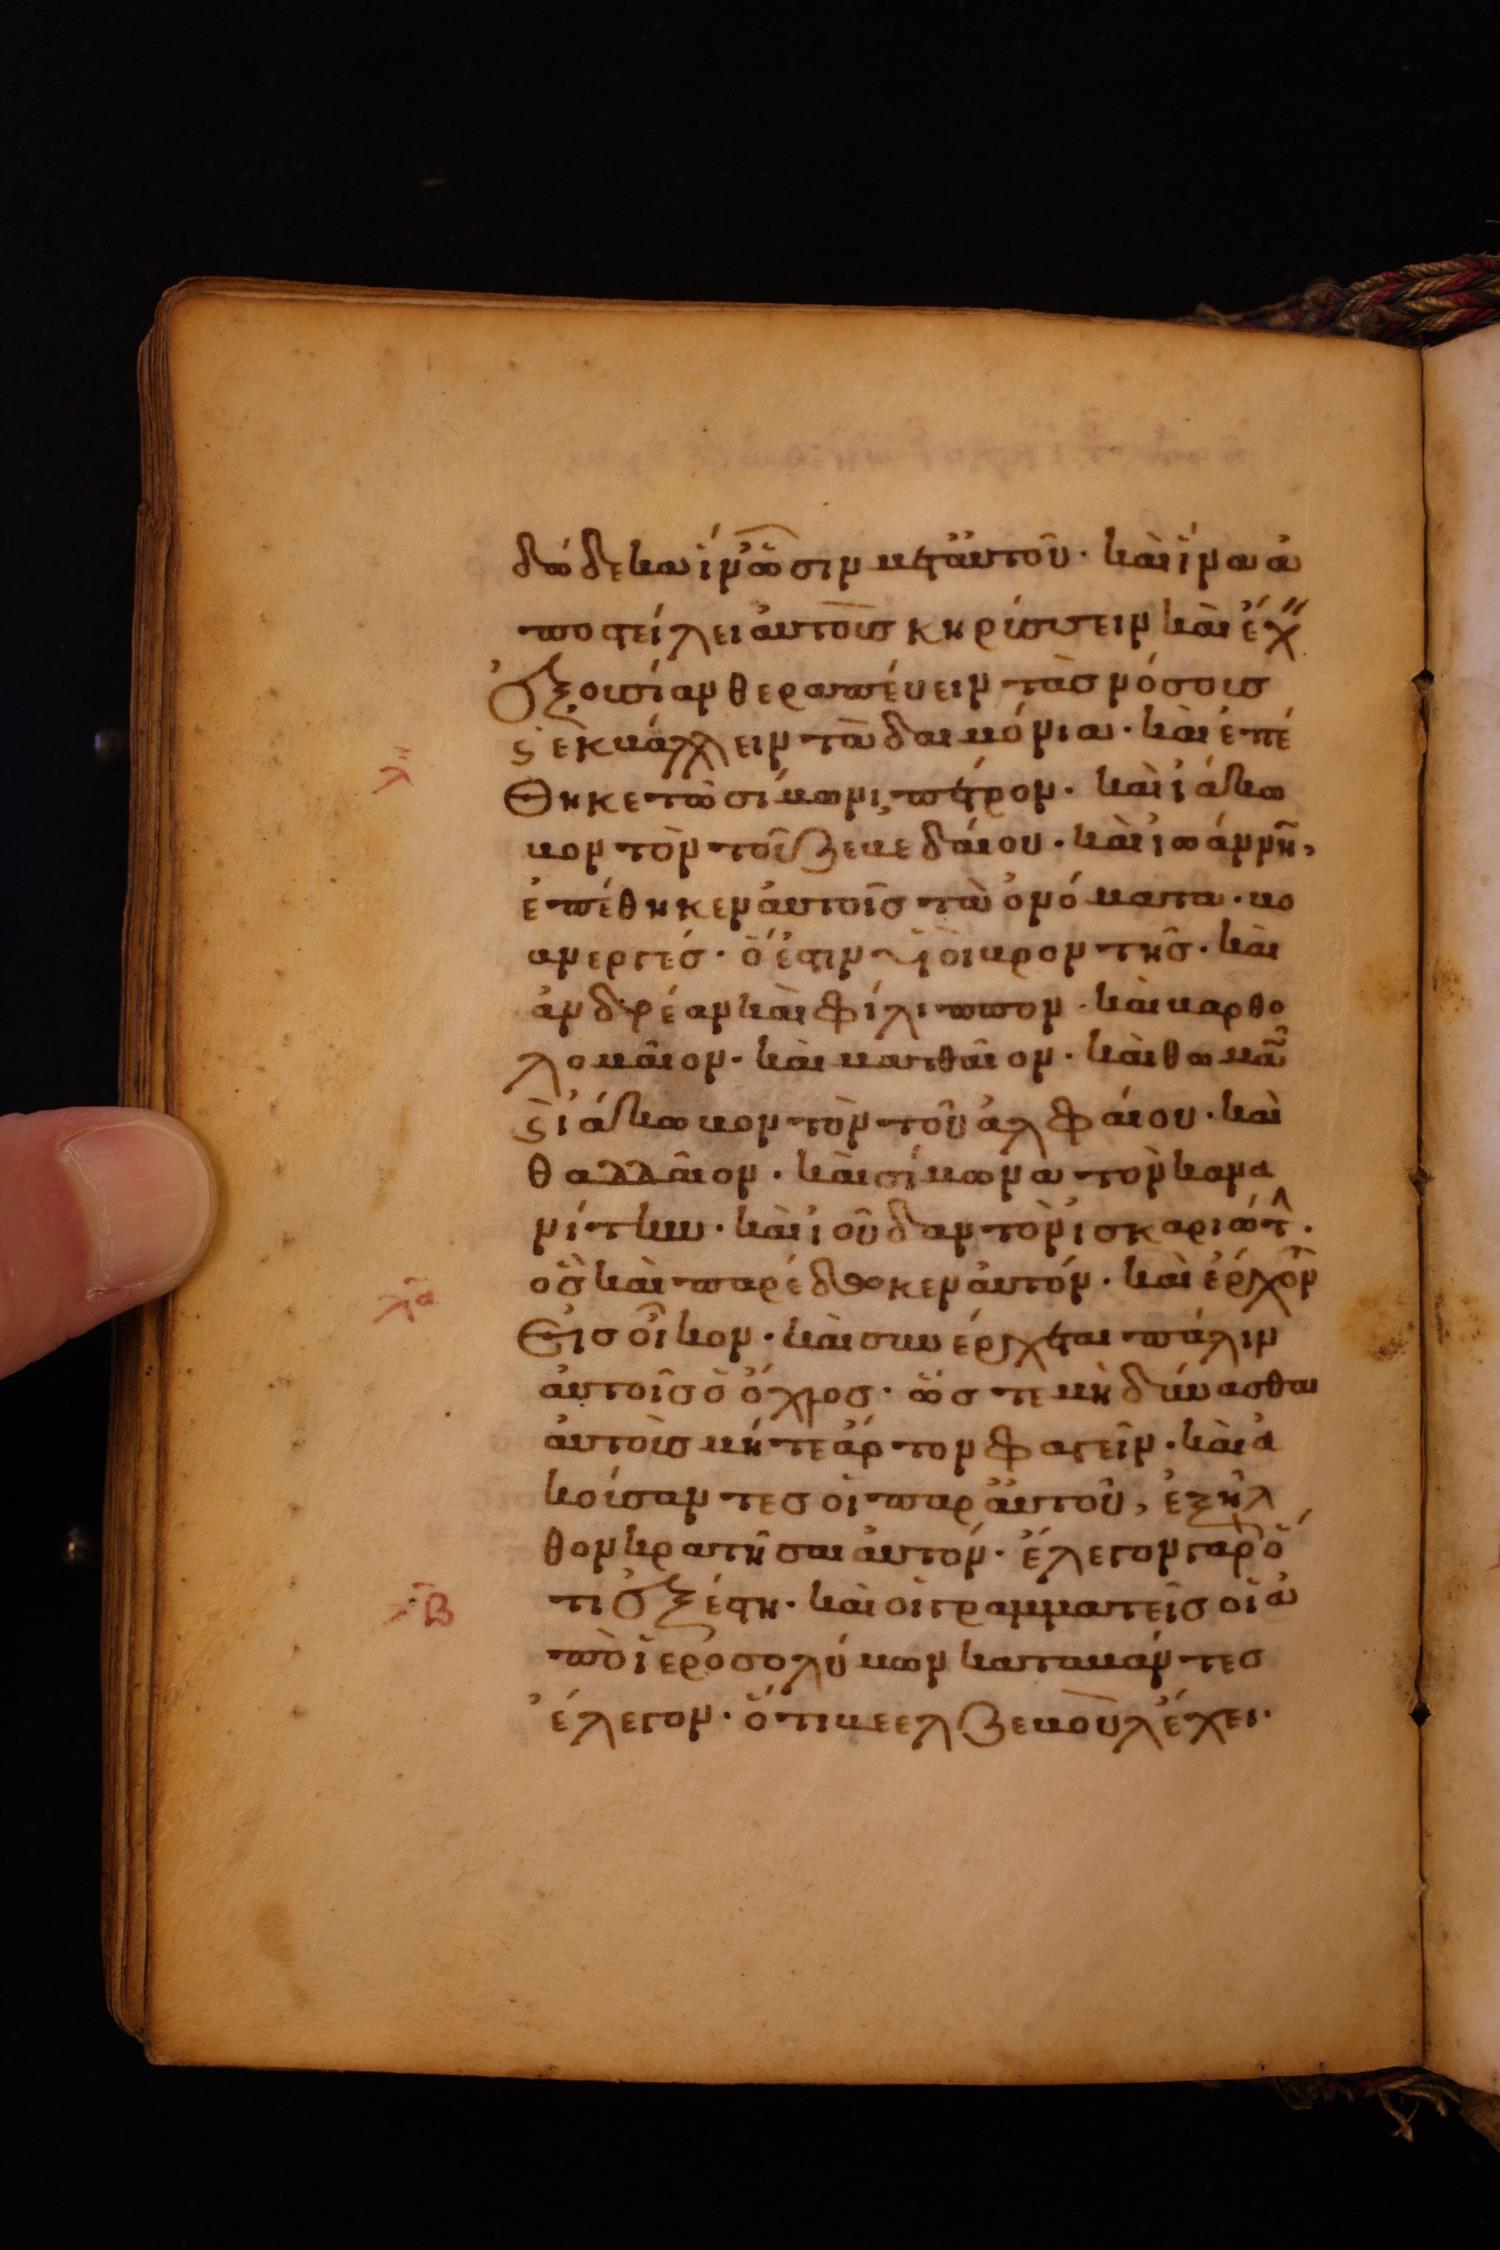 δώδεκα ἵνα ὦσιν μετ' αὐτοῦ· καὶ ἵνα ἀ
ποστείλει αὐτοὺς κηρύσσειν καὶ ἔχ
ἐξουσίαν θεραπεύειν τὰς νόσους
λ
ϛ ἐκβάλλειν τὰ δαιμόνια· καὶ ἐπέ
θηκε τῷ σίμωνι πέτρον· καὶ ἰάκω
βον τὸν τοῦ ζεβεδαίου· καὶ ἰωάννη,
ἐπέθηκεν αὐτοῖς τὰ ὀνόματα· βο
ανεργές· ὅ ἐστιν υἱοὶ βροντῆς· καὶ
ἀνδρέαν καὶ φίλιππον· καὶ βαρθο
λομαῖον· καὶ ματθαῖον· καὶ θωμᾶ
ϛ ἰάκωβον τὸν τοῦ ἀλφαίου· καὶ
θαδδαῖον· καὶ σίμωνα τὸν κανα
νίτην· καὶ ἰούδαν τὸν ἰσκαριώτ·
ὃς καὶ παρέδωκεν αὐτόν· καὶ ἔρχον
λα
εἰς οἶκον· καὶ συνέρχεται πάλιν
αὐτοῖς ὁ ὄχλος· ὥστε μὴ δύνασθαι
αὐτοὺς μήτε ἄρτον φαγεῖν· καὶ ἀ
κούσαντες οἱ παρ' αὐτοῦ, ἐξῆλ
θον κρατῆσαι αὐτόν· ἔλεγον γὰρ ὅ
λβ
τι ἐξέστη· καὶ οἱ γραμματεῖς οἱ ἀ
πὸ ἱεροσολύμων καταβάντες
ἔλεγον· ὅτι βεελζεβοὺλ ἔχει·